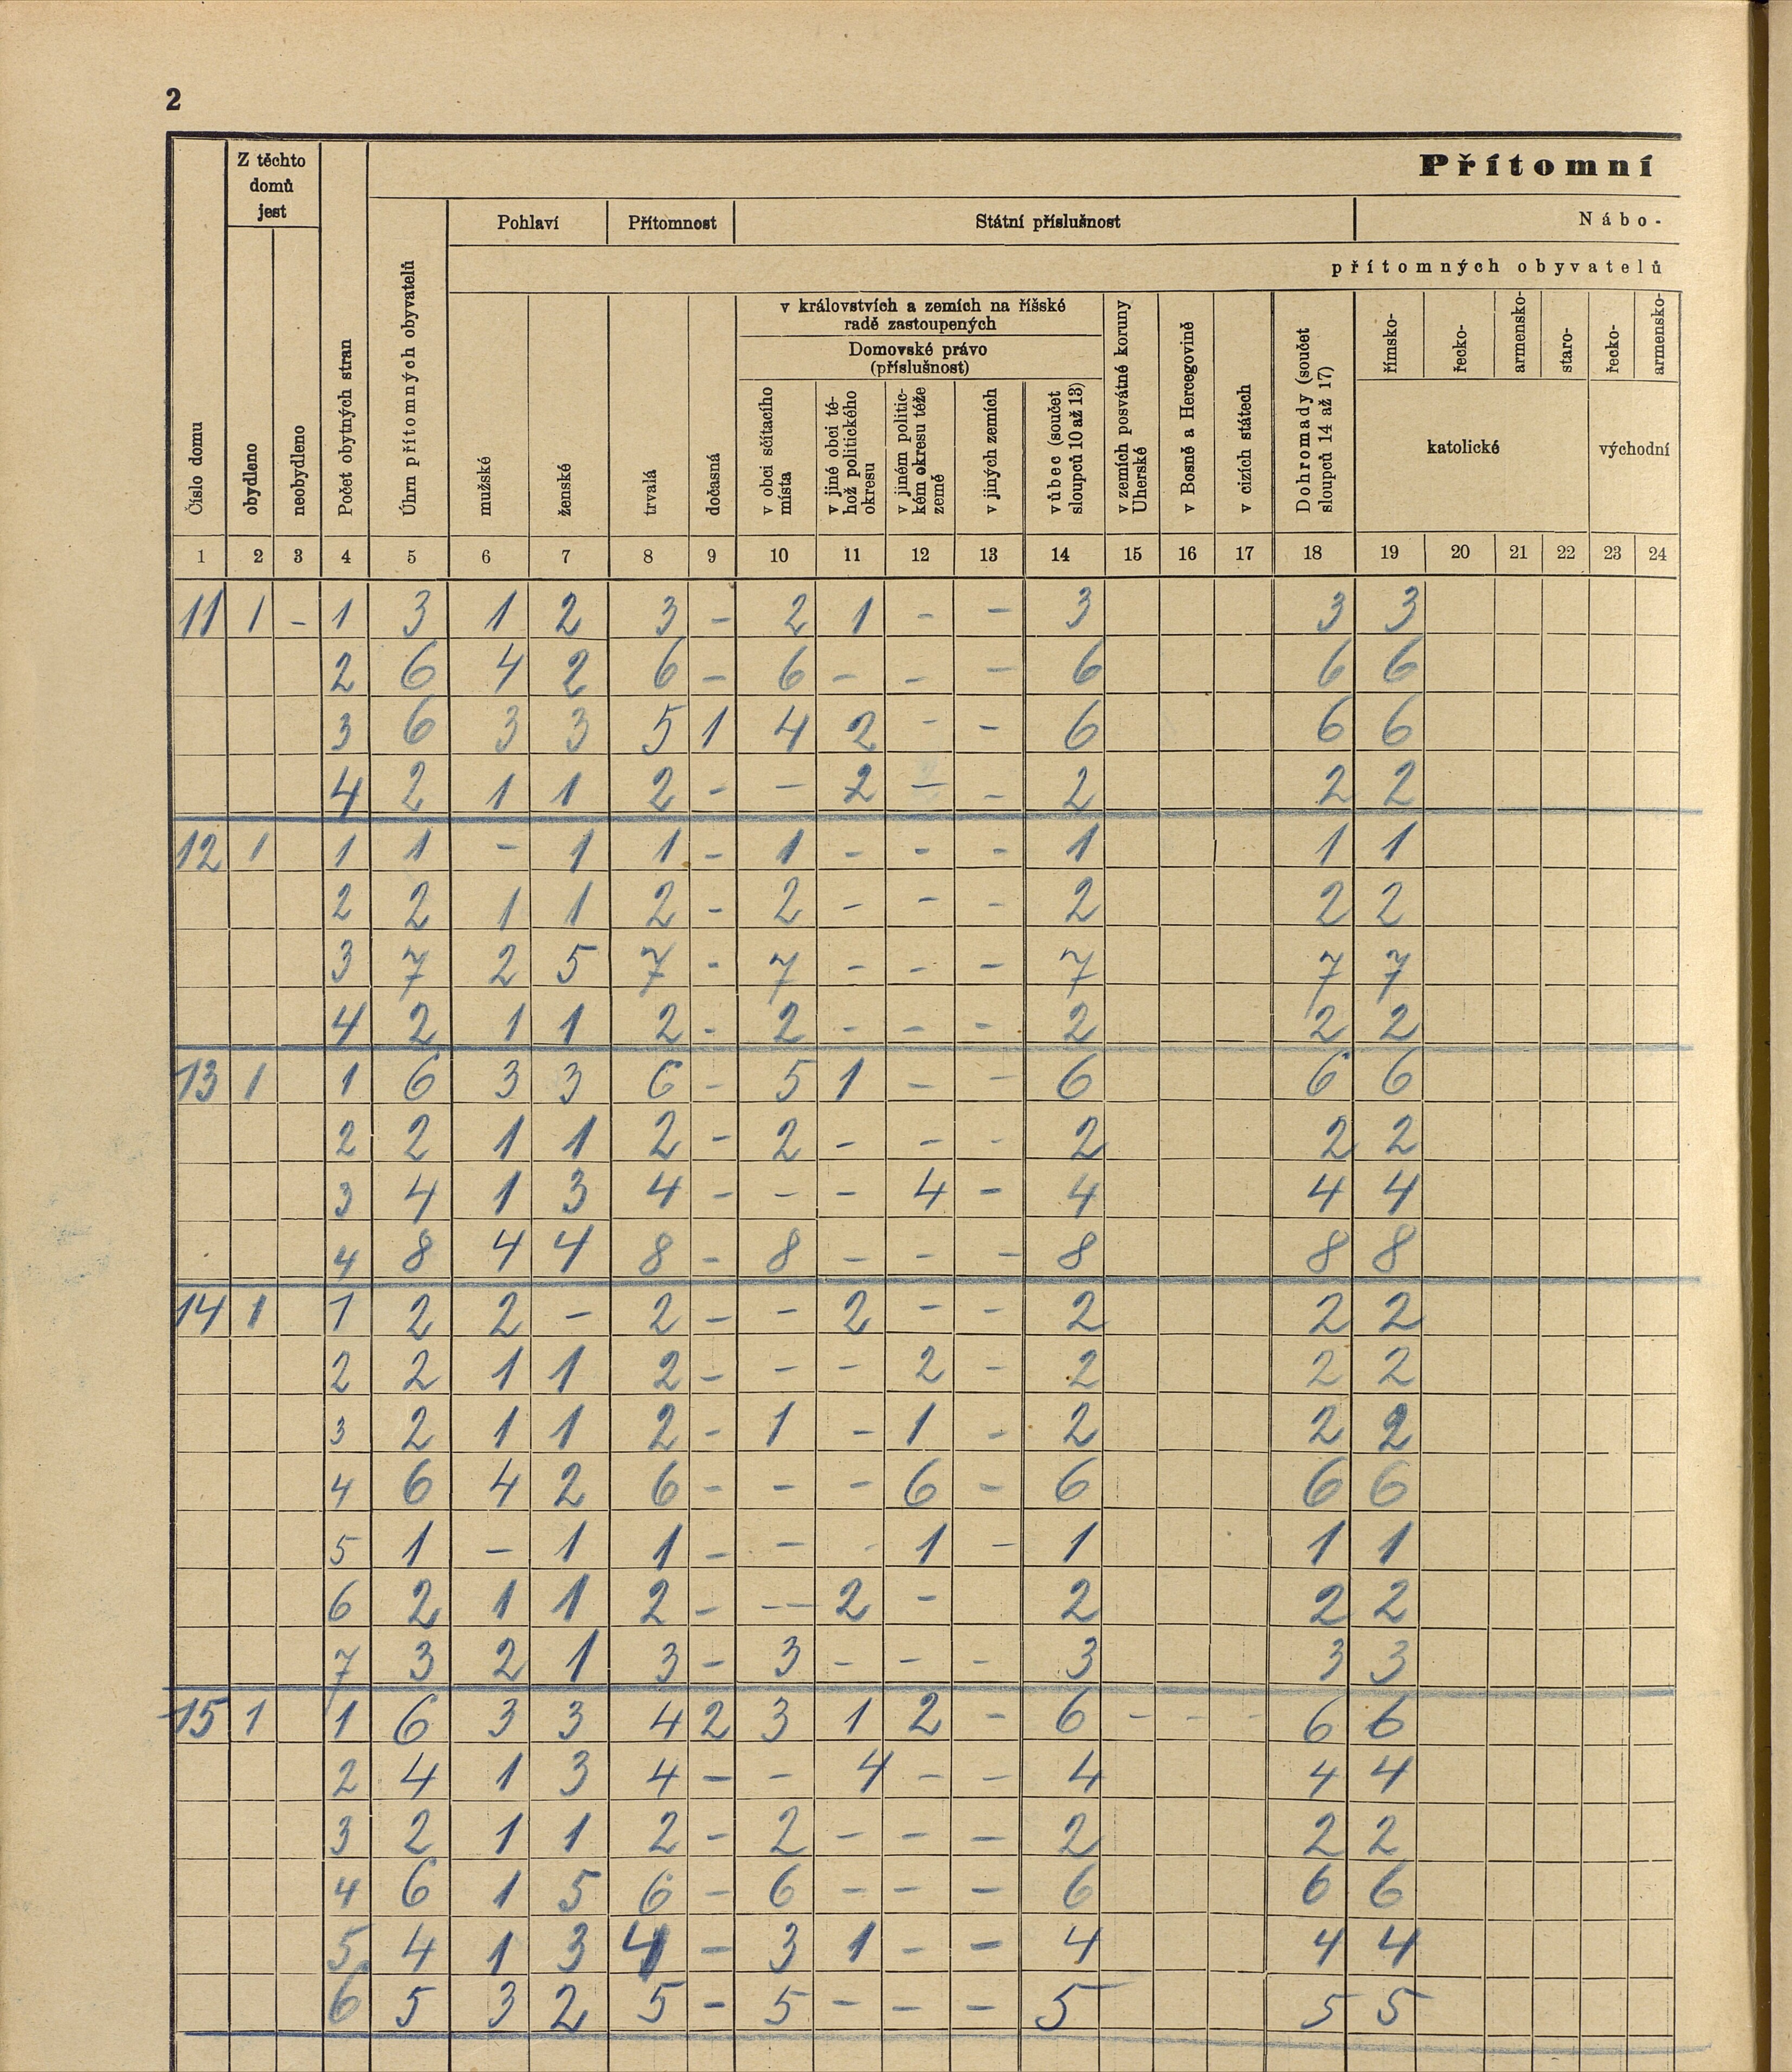 2
Přítomní
Z těchto domů jest
Pohlaví
Přítomnost
Státní příslušnost
Nábo-
přítomných obyvatelů
v královstvích a zemích na říšské radě zastoupených
Domovské právo (příslušnost)
Číslo domu
obydleno
neobydleno
Počet obytných stran
Úhrn přítomných obyvatelů
mužské
ženské
trvalá
dočasná
v obci sčítacího místa
v jiné obci téhož politického okresu
v jiném politickém okresu téže země
v jiných zemích
vůbec (součet sloupců 10 až 13)
v zemích posvátné koruny Uherské
v Bosně a Hercegovině
v cizích státech
Dohromady (součet sloupců 14 až 17)
římsko-
řecko-
armensko-
staro-
řecko-
armensko-
katolické
východní
1 2 3 4 5 6 7 8 9 10 11 12 13 14 15 16 17 18 19 20 21 22 23 24
11 1 - 1 3 1 2 3 - 2 1 - - 3 3 3
2 6 4 2 6 - 6 - - - 6 6 6
3 6 3 3 5 1 4 2 - - 6 6 6
4 2 1 1 2 - - 2 - - 2 2 2
12 1 1 1 - 1 1 - 1 - - - 1 1 1
2 2 1 1 2 - 2 - - - 2 2 2
3 7 2 5 7 - 7 - - - 7 7 7
4 2 1 1 2 - 2 - - - 2 2 2
13 1 1 6 3 3 6 - 5 1 - - 6 6 6
2 2 1 1 2 - 2 - - - 2 2 2
3 4 1 3 4 - - - 4 - 4 4 4
4 8 4 4 8 - 8 - - - 8 8 8
14 1 1 2 2 - 2 - - 2 - - 2 2 2
2 2 1 1 2 - - - 2 - 2 2 2
3 2 1 1 2 - 1 - 1 - 2 2 2
4 6 4 2 6 - - - 6 - 6 6 6
5 1 - 1 1 - - - 1 - 1 1 1
6 2 1 1 2 - - - 2 - 2 2 2
7 3 2 1 3 - 3 - - - 3 3 3
15 1 1 6 3 3 4 2 3 1 2 - 6 - - - 6 6
2 4 1 3 4 - - 4 - - 4 4 4
3 2 1 1 2 - 2 - - - 2 2 2
4 6 1 5 6 - 6 - - - 6 6 6
5 4 1 3 4 - 3 1 - - 4 4 4
6 5 3 2 5 - 5 - - - 5 5 5